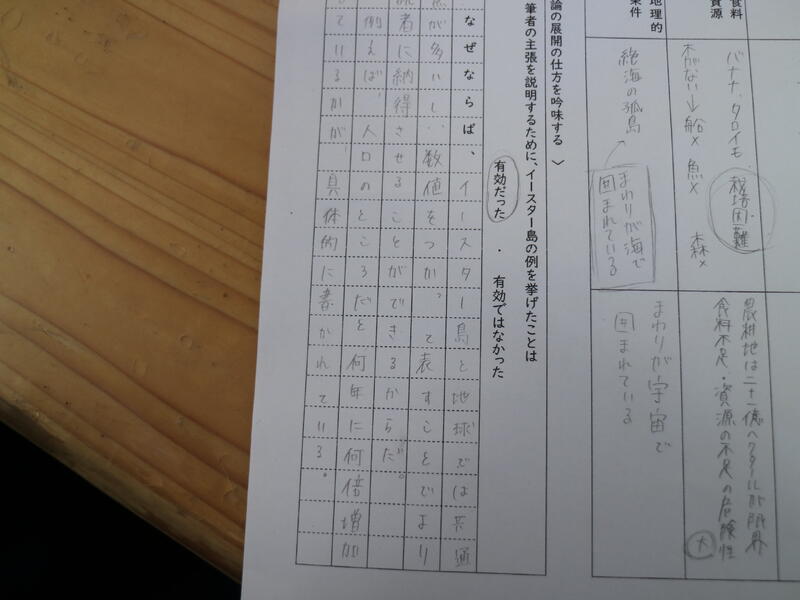 食料
資源
バナナ、タロイモ 栽培困難
木がない→船× 魚× 森×
農耕地は二十一億ヘクタールが限界
食料不足・資源の不足の危険性
大
地理的
条件
絶海の孤島
まわりが海で
囲まれている
まわりが宇宙で
囲まれている
論の展開の仕方を吟味する 〉
筆者の主張を説明するために、イースター島の例を挙げたことは
有効だった ・ 有効ではなかった
なぜならば、イースター島と地球では共通
が多いし、数値をつかって表すことでより
者に納得させることができるからだ。
例えば、人口のところだと何年に何倍増か
ているかが、具体的に書かれている。